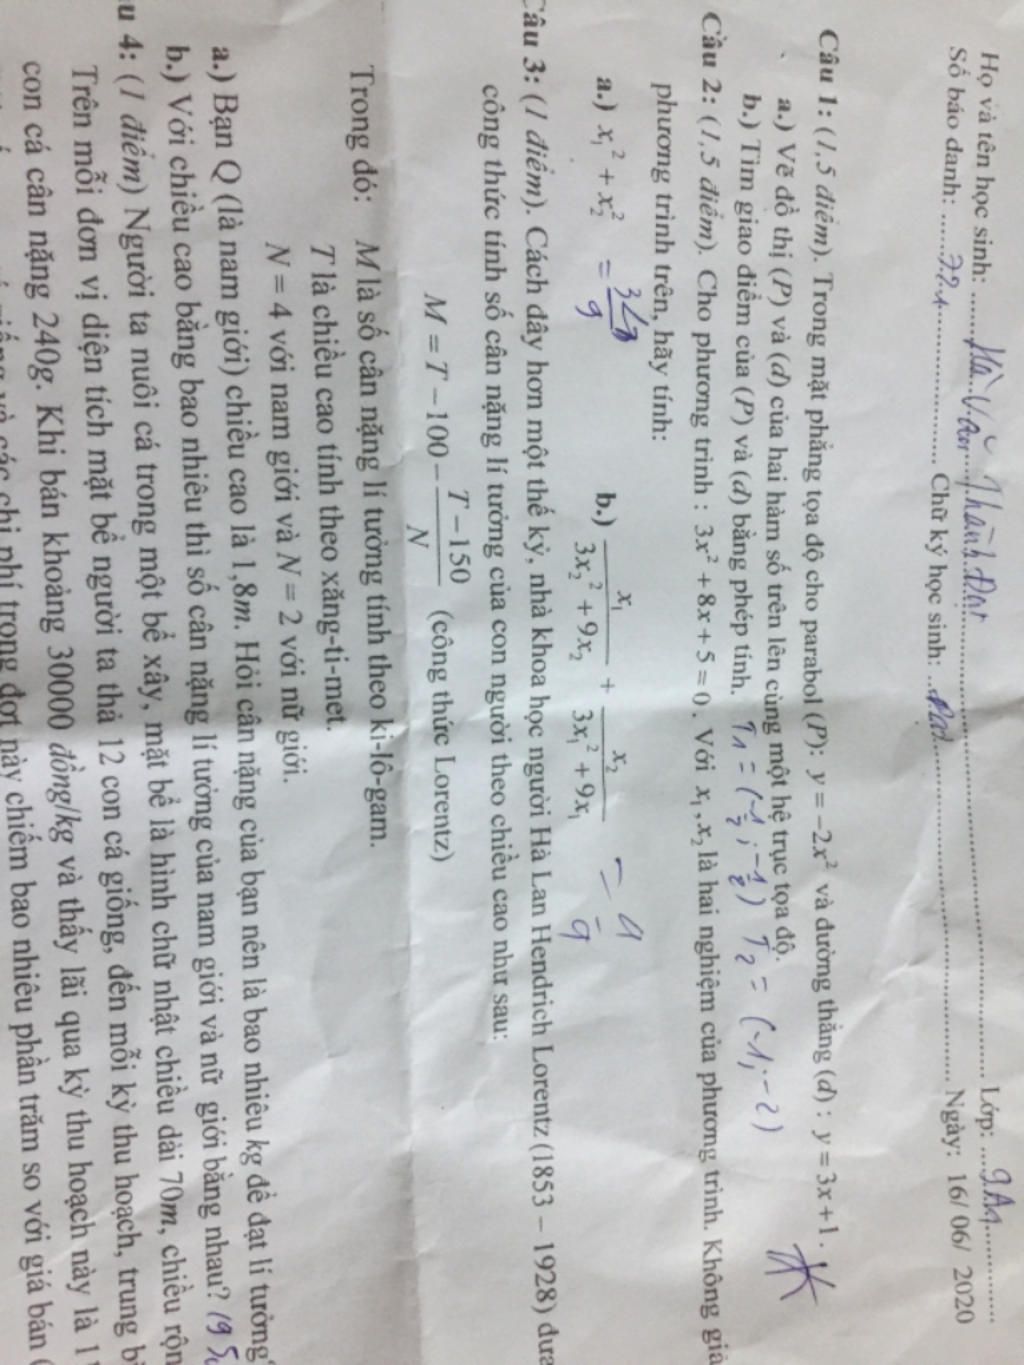 Họ và tên học sinh: Hà Văn Thành Đạt Lớp: 9A1
Số báo danh: Chữ ký học sinh: Đạt Ngày: 16/ 06/ 2020
Câu 1: (1,5 điểm). Trong mặt phẳng tọa độ cho parabol (P): y = −2x² và đường thẳng (d) : y = 3x + 1.
a.) Vẽ đồ thị (P) và (d) của hai hàm số trên lên cùng một hệ trục tọa độ.
b.) Tìm giao điểm của (P) và (d) bằng phép tính. T₁ = (-1/2 ; -1/2) T₂ = (-1; -2)
Câu 2: (1,5 điểm). Cho phương trình : 3x² + 8x + 5 = 0. Với x₁, x₂ là hai nghiệm của phương trình. Không giả
phương trình trên, hãy tính:
a.) x₁² + x₂² = 34/9 b.) x₁/(3x₂² + 9x₂) + x₂/(3x₁² + 9x₁) =
Câu 3: (1 điểm). Cách đây hơn một thế kỷ, nhà khoa học người Hà Lan Hendrich Lorentz (1853 – 1928) đưa
công thức tính số cân nặng lí tưởng của con người theo chiều cao như sau:
M = T − 100 − (T − 150)/N (công thức Lorentz)
Trong đó: M là số cân nặng lí tưởng tính theo ki-lô-gam.
T là chiều cao tính theo xăng-ti-met.
N = 4 với nam giới và N = 2 với nữ giới.
a.) Bạn Q (là nam giới) chiều cao là 1,8m. Hỏi cân nặng của bạn nên là bao nhiêu kg để đạt lí tưởng
b.) Với chiều cao bằng bao nhiêu thì số cân nặng lí tưởng của nam giới và nữ giới bằng nhau?
u 4: (1 điểm) Người ta nuôi cá trong một bể xây, mặt bể là hình chữ nhật chiều dài 70m, chiều rộn
Trên mỗi đơn vị diện tích mặt bể người ta thả 12 con cá giống, đến mỗi kỳ thu hoạch, trung b
con cá cân nặng 240g. Khi bán khoảng 30000 đồng/kg và thấy lãi qua kỳ thu hoạch này là 1
giống và các chi phí trong đợt này chiếm bao nhiêu phần trăm so với giá bán